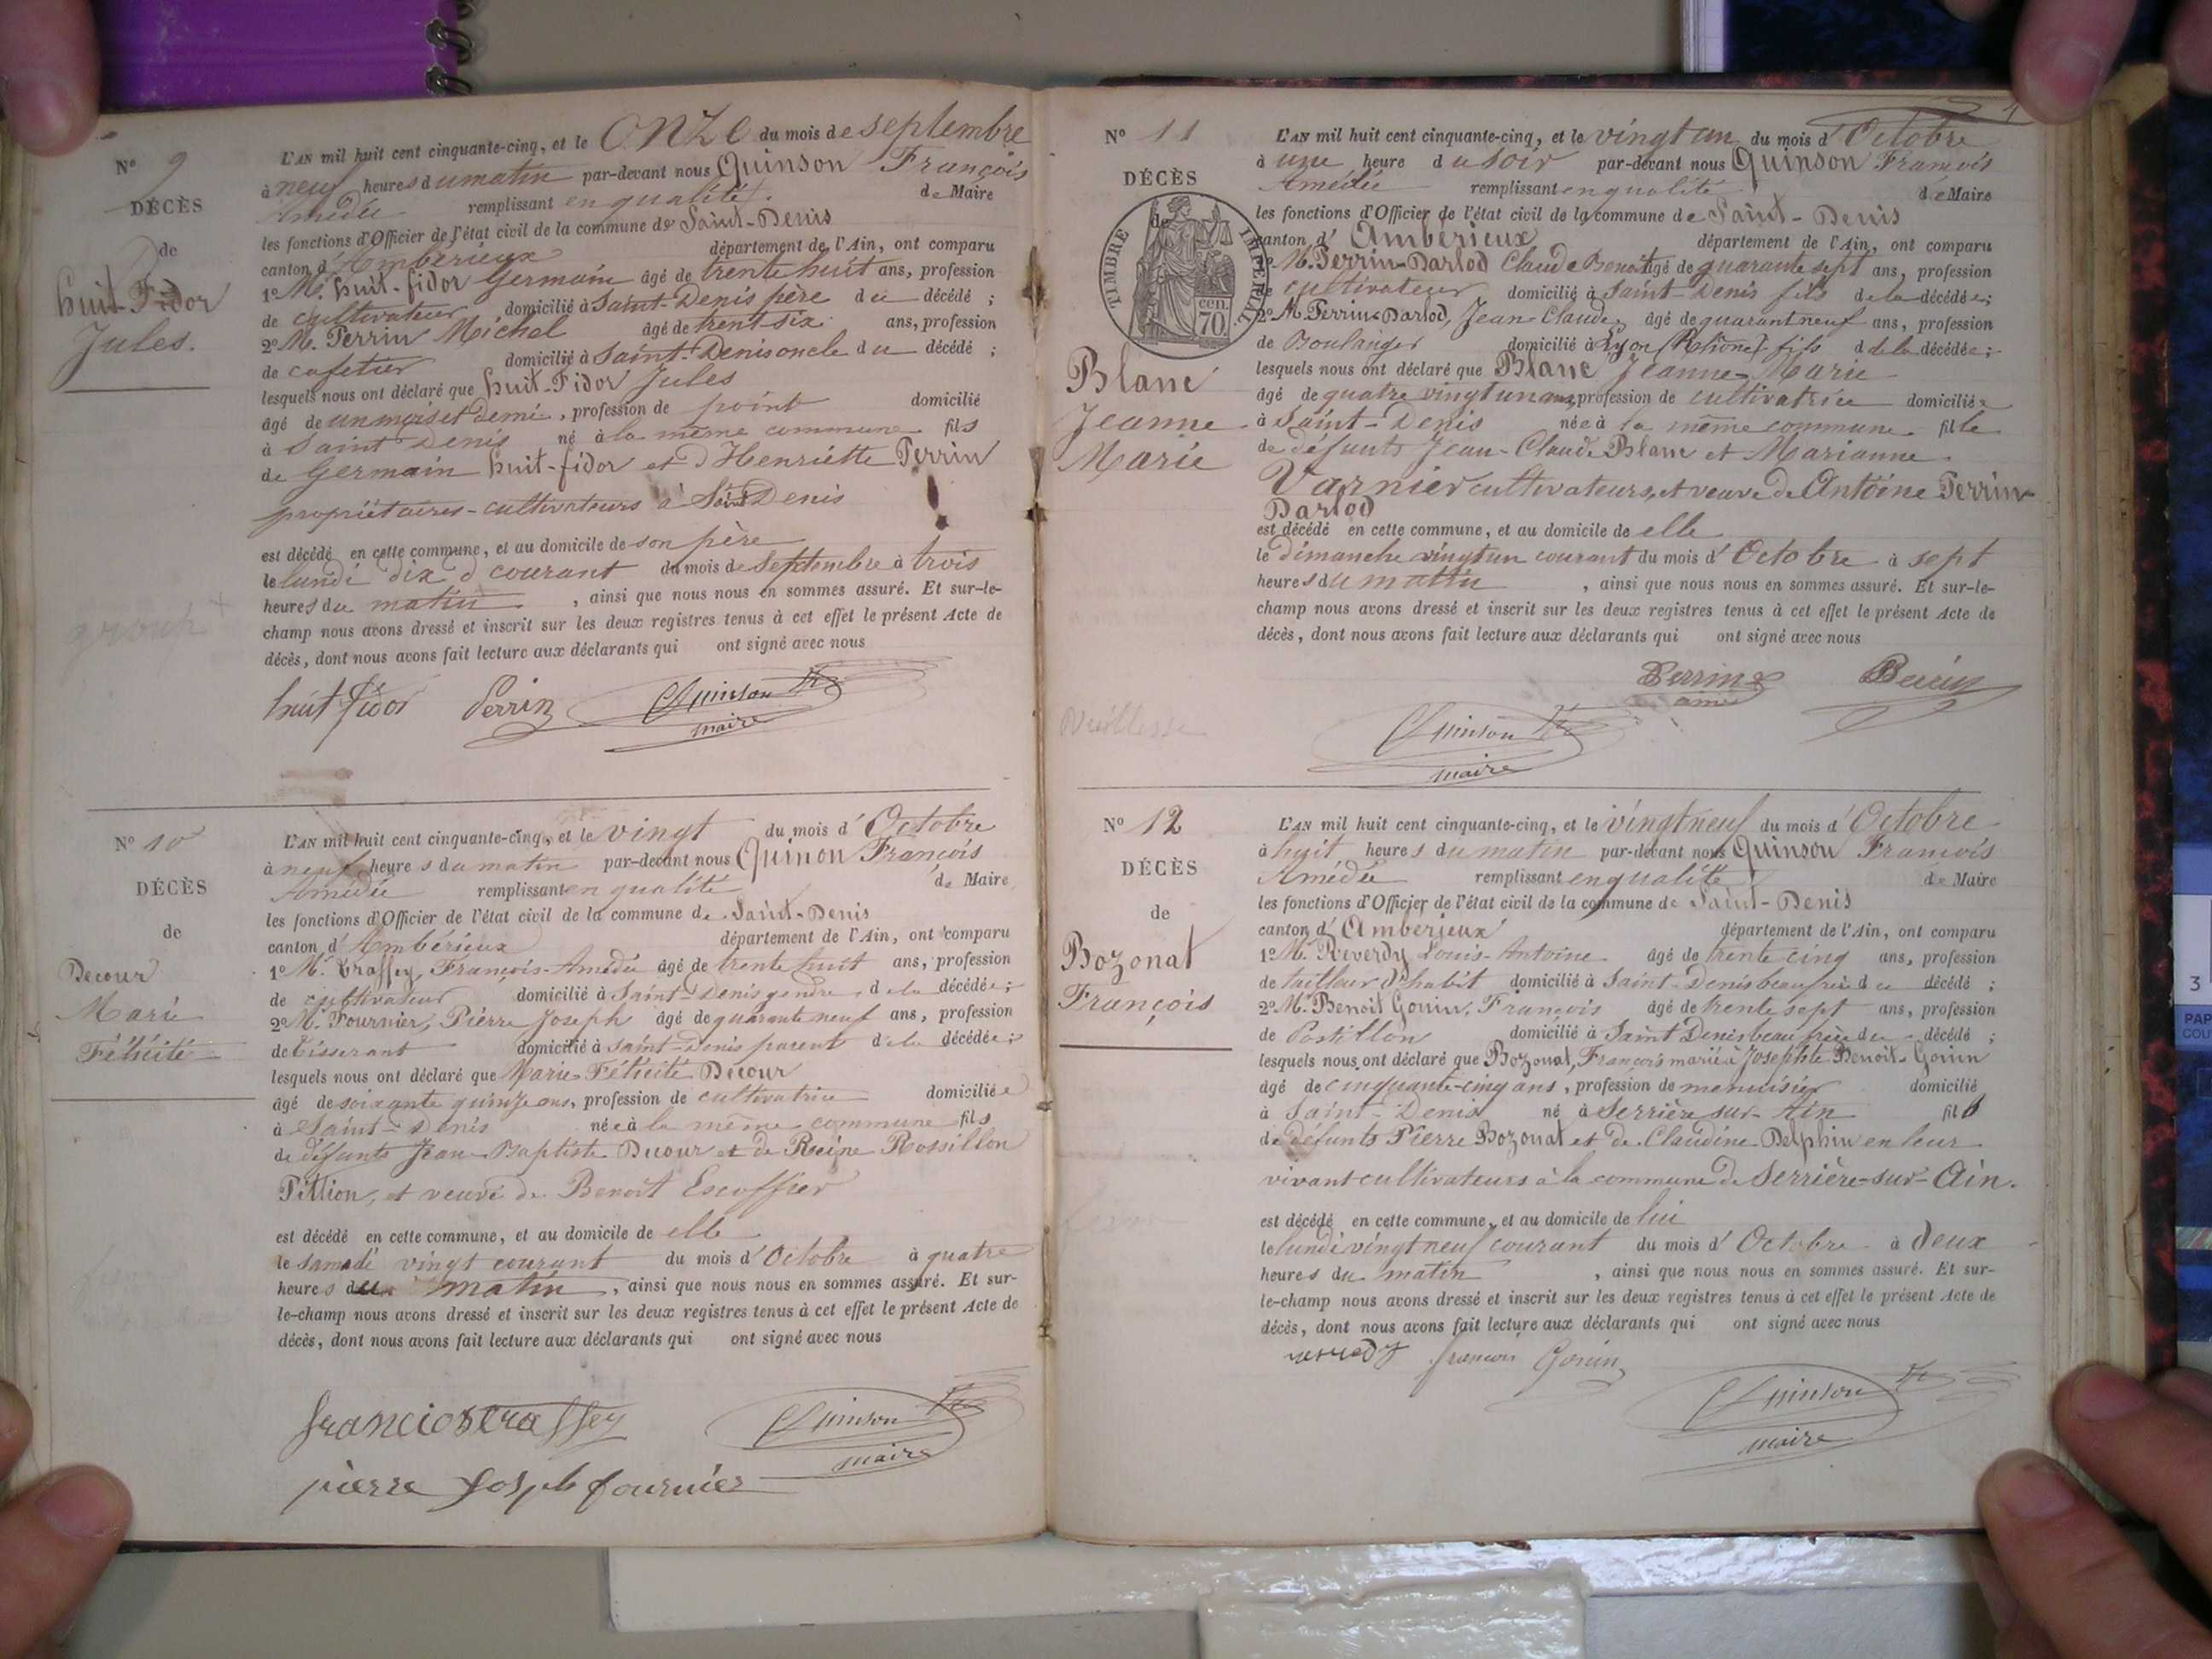 N° 9
DÉCÈS
de
huit-Fidor
Jules.
L'AN mil huit cent cinquante-cinq, et le onze du mois de septembre
à neuf heures du matin par-devant nous Quinson François
Amédée remplissant en qualité de Maire
les fonctions d'Officier de l'état civil de la commune de Saint-Denis
canton d'Ambérieux département de l'Ain, ont comparu
1° M. huit-fidor Germain âgé de trente huit ans, profession
de cultivateur domicilié à Saint-Denis père du décédé ;
2° M. Perrin Michel âgé de trent-six ans, profession
de cafetier domicilié à Saint-Denis oncle du décédé ;
lesquels nous ont déclaré que huit-Fidor Jules
âgé de un mois et demi, profession de point domicilié
à Saint Denis né à la même commune fils
de Germain huit-fidor et d'Henriette Perrin
propriétaires-cultivateurs à St Denis
est décédé en cette commune, et au domicile de son père
le lundi dix d courant du mois de Septembre à trois
heures du matin , ainsi que nous nous en sommes assuré. Et sur-le-
champ nous avons dressé et inscrit sur les deux registres tenus à cet effet le présent Acte de
décès, dont nous avons fait lecture aux déclarants qui ont signé avec nous
huit fidor Perrin Quinson
maire
N° 10
DÉCÈS
de
Decour
Marie
Félicité
L'AN mil huit cent cinquante-cinq, et le vingt du mois d'Octobre
à neuf heures du matin par-devant nous Quinon François
Amédée remplissant en qualité de Maire
les fonctions d'Officier de l'état civil de la commune de Saint-Denis
canton d'Ambérieux département de l'Ain, ont comparu
1° M. Traffey, François-Amédée âgé de trente huit ans, profession
de cultivateur domicilié à Saint-Denis gendre de la décédée ;
2° M. Fournier, Pierre Joseph âgé de quarante neuf ans, profession
de tisserant domicilié à Saint-Denis parent de la décédée ;
lesquels nous ont déclaré que Marie Félicité Decour
âgé de soixante quinze ans, profession de cultivatrice domiciliée
à Saint-Denis née à la même commune fils
de défunts Jean-Baptiste Decour et de Reine Rossillon
Pittion, et veuve de Benoît Escoffier
est décédé en cette commune, et au domicile de elle
le samedi vingt courant du mois d'Octobre à quatre
heures du matin, ainsi que nous nous en sommes assuré. Et sur-
le-champ nous avons dressé et inscrit sur les deux registres tenus à cet effet le présent Acte de
décès, dont nous avons fait lecture aux déclarants qui ont signé avec nous
Quinson
maire
pierre Joseph fournier
N° 11
DÉCÈS
de
TIMBRE IMPÉRIAL
70 cen
Blanc
Jeanne
Marie
Vieillesse
L'AN mil huit cent cinquante-cinq, et le vingt un du mois d'Octobre
à une heure du soir par-devant nous Quinson François
Amédée remplissant en qualité de Maire
les fonctions d'Officier de l'état civil de la commune de Saint-Denis
canton d'Ambérieux département de l'Ain, ont comparu
1° M. Perrin-Darlod Claude Benoit âgé de quarante sept ans, profession
de cultivateur domicilié à Saint-Denis fils de la décédée ;
2° M. Perrin-Darlod, Jean-Claude âgé de quarant neuf ans, profession
de Boulanger domicilié à Lyon (Rhône) fils de la décédée ;
lesquels nous ont déclaré que Blanc Jeanne-Marie
âgé de quatre vingt un ans, profession de cultivatrice domiciliée
à Saint-Denis née à la même commune fille
de défunts Jean-Claude Blanc et Marianne
Varnier cultivateurs, et veuve de Antoine Perrin
Darlod
est décédé en cette commune, et au domicile de elle
le dimanche vingt un courant du mois d'Octobre à sept
heures du matin , ainsi que nous nous en sommes assuré. Et sur-le-
champ nous avons dressé et inscrit sur les deux registres tenus à cet effet le présent Acte de
décès, dont nous avons fait lecture aux déclarants qui ont signé avec nous
Perrin Perrin
Quinson
maire
N° 12
DÉCÈS
de
Bozonat
François
L'AN mil huit cent cinquante-cinq, et le vingt neuf du mois d'Octobre
à huit heures du matin par-devant nous Quinson François
Amédée remplissant en qualité de Maire
les fonctions d'Officier de l'état civil de la commune de Saint-Denis
canton d'Ambérieux département de l'Ain, ont comparu
1° M. Reverdy Louis-Antoine âgé de trente cinq ans, profession
de tailleur d'habit domicilié à Saint-Denis beau frère du décédé ;
2° M. Benoit Gonin, François âgé de trente sept ans, profession
de Postillon domicilié à Saint Denis beau frère du décédé ;
lesquels nous ont déclaré que Bozonat, François marié à Josephte Benoit-Gonin
âgé de cinquante-cinq ans, profession de menuisier domicilié
à Saint-Denis né à Serrière-sur-Ain fils
de défunts Pierre Bozonat et de Claudine Delphin en leur
vivant cultivateurs à la commune de Serrière-sur-Ain.
est décédé en cette commune, et au domicile de lui
le lundi vingt neuf courant du mois d'Octobre à deux
heures du matin , ainsi que nous nous en sommes assuré. Et sur-
le-champ nous avons dressé et inscrit sur les deux registres tenus à cet effet le présent Acte de
décès, dont nous avons fait lecture aux déclarants qui ont signé avec nous
reverdy françois Gonin
Quinson
maire